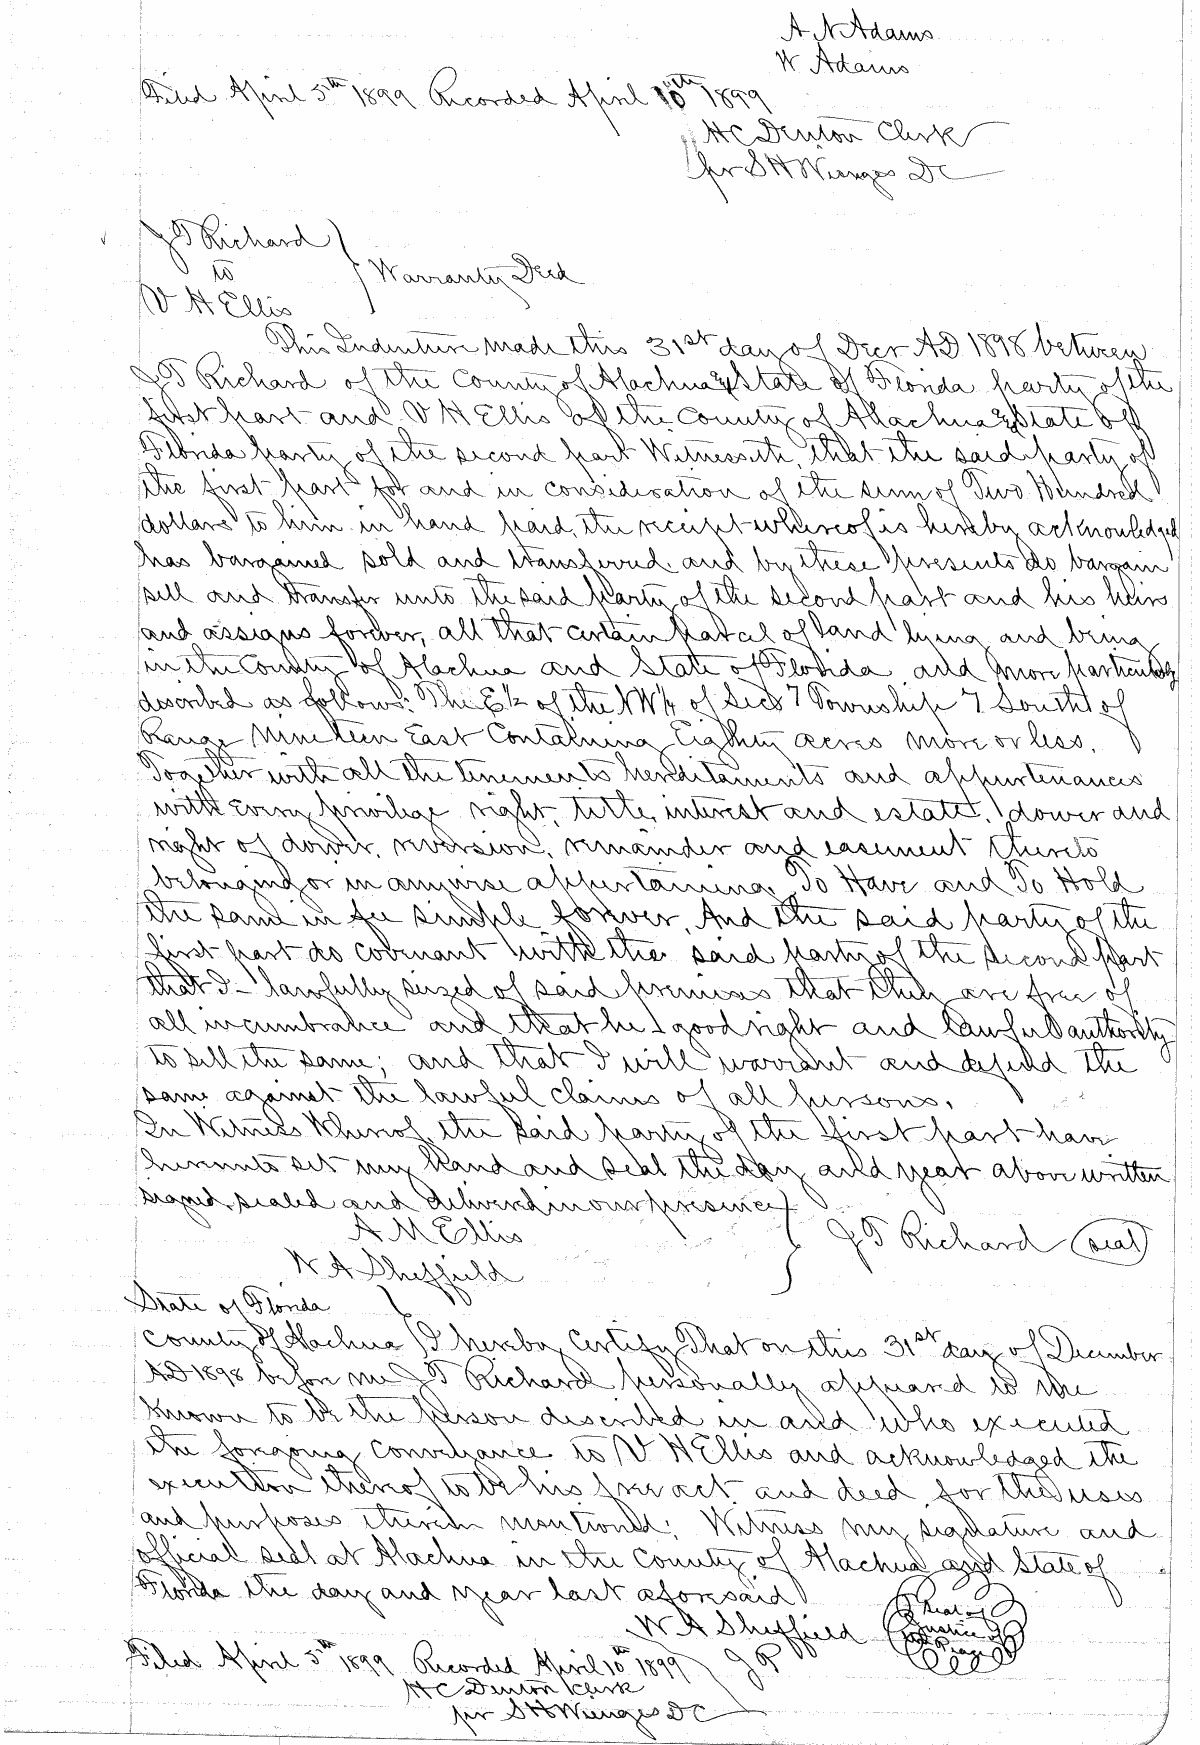 A N Adams
W Adams
Filed April 5th 1899 Recorded April 10th 1899
H C Denton Clerk
per S H Wienges DC
J T Richard
to
Warranty Deed
V H Ellis
This Indenture made this 31st day of Decr AD 1898 between
J T Richard of the County of Alachua & State of Florida party of the
first part and V H Ellis of the County of Alachua & State of
Florida party of the second part Witnesseth, that the said party of
the first part for and in consideration of the sum of Two Hundred
dollars to him in hand paid, the receipt whereof is hereby acknowledged
has bargained sold and transferred and by these presents do bargain
sell and transfer unto the said party of the second part and his heirs
and assigns forever, all that certain parcel of land lying and being
in the County of Alachua and State of Florida and more particularly
described as follows: The E½ of the NW¼ of Sec 7 Township 7 South of
Range Nineteen East Containing Eighty acres more or less.
Together with all the tenements hereditaments and appurtenances
with every privilege right, title, interest and estate, dower and
right of dower, reversion, remainder and easement thereto
belonging or in anywise appertaining, To Have and To Hold
the same in fee simple forever, And the said party of the
first part do covenant with the said party of the second part
that I - lawfully seized of said premises that they are free of
all incumbrance and that he I good right and lawful authority
to sell the same; and that I will warrant and defend the
same against the lawful claims of all persons.
In Witness Whereof, the said party of the first part have
hereunto set my hand and seal the day and year above written
signed, sealed and delivered in our presence
A M Ellis
J T Richard (seal)
W A Sheffield
State of Florida
County of Alachua I hereby Certify That on this 31st day of December
AD 1898 before me J T Richard personally appeared to me
known to be the person described in and who executed
the foregoing conveyance to V H Ellis and acknowledged the
execution thereof to be his free act and deed for the uses
and purposes therein mentioned; Witness my signature and
official seal at Alachua in the County of Alachua and State of
Florida the day and year last aforesaid
W A Sheffield
J P
Seal of
Justice of
the Peace
Filed April 5th 1899 Recorded April 10th 1899
H C Denton Clerk
per S H Wienges DC